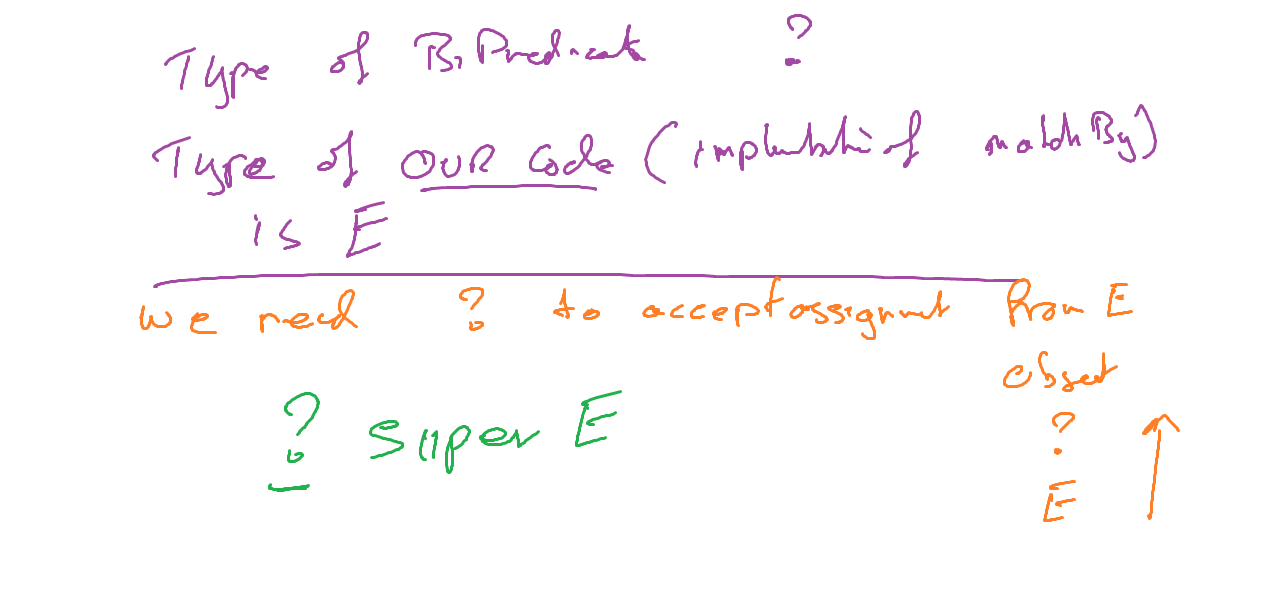 Type of BiPredicate ?
Type of OUR Code ( of matchBy)
is E
we need ? to accept assignment from E
Object
? super E
?
E